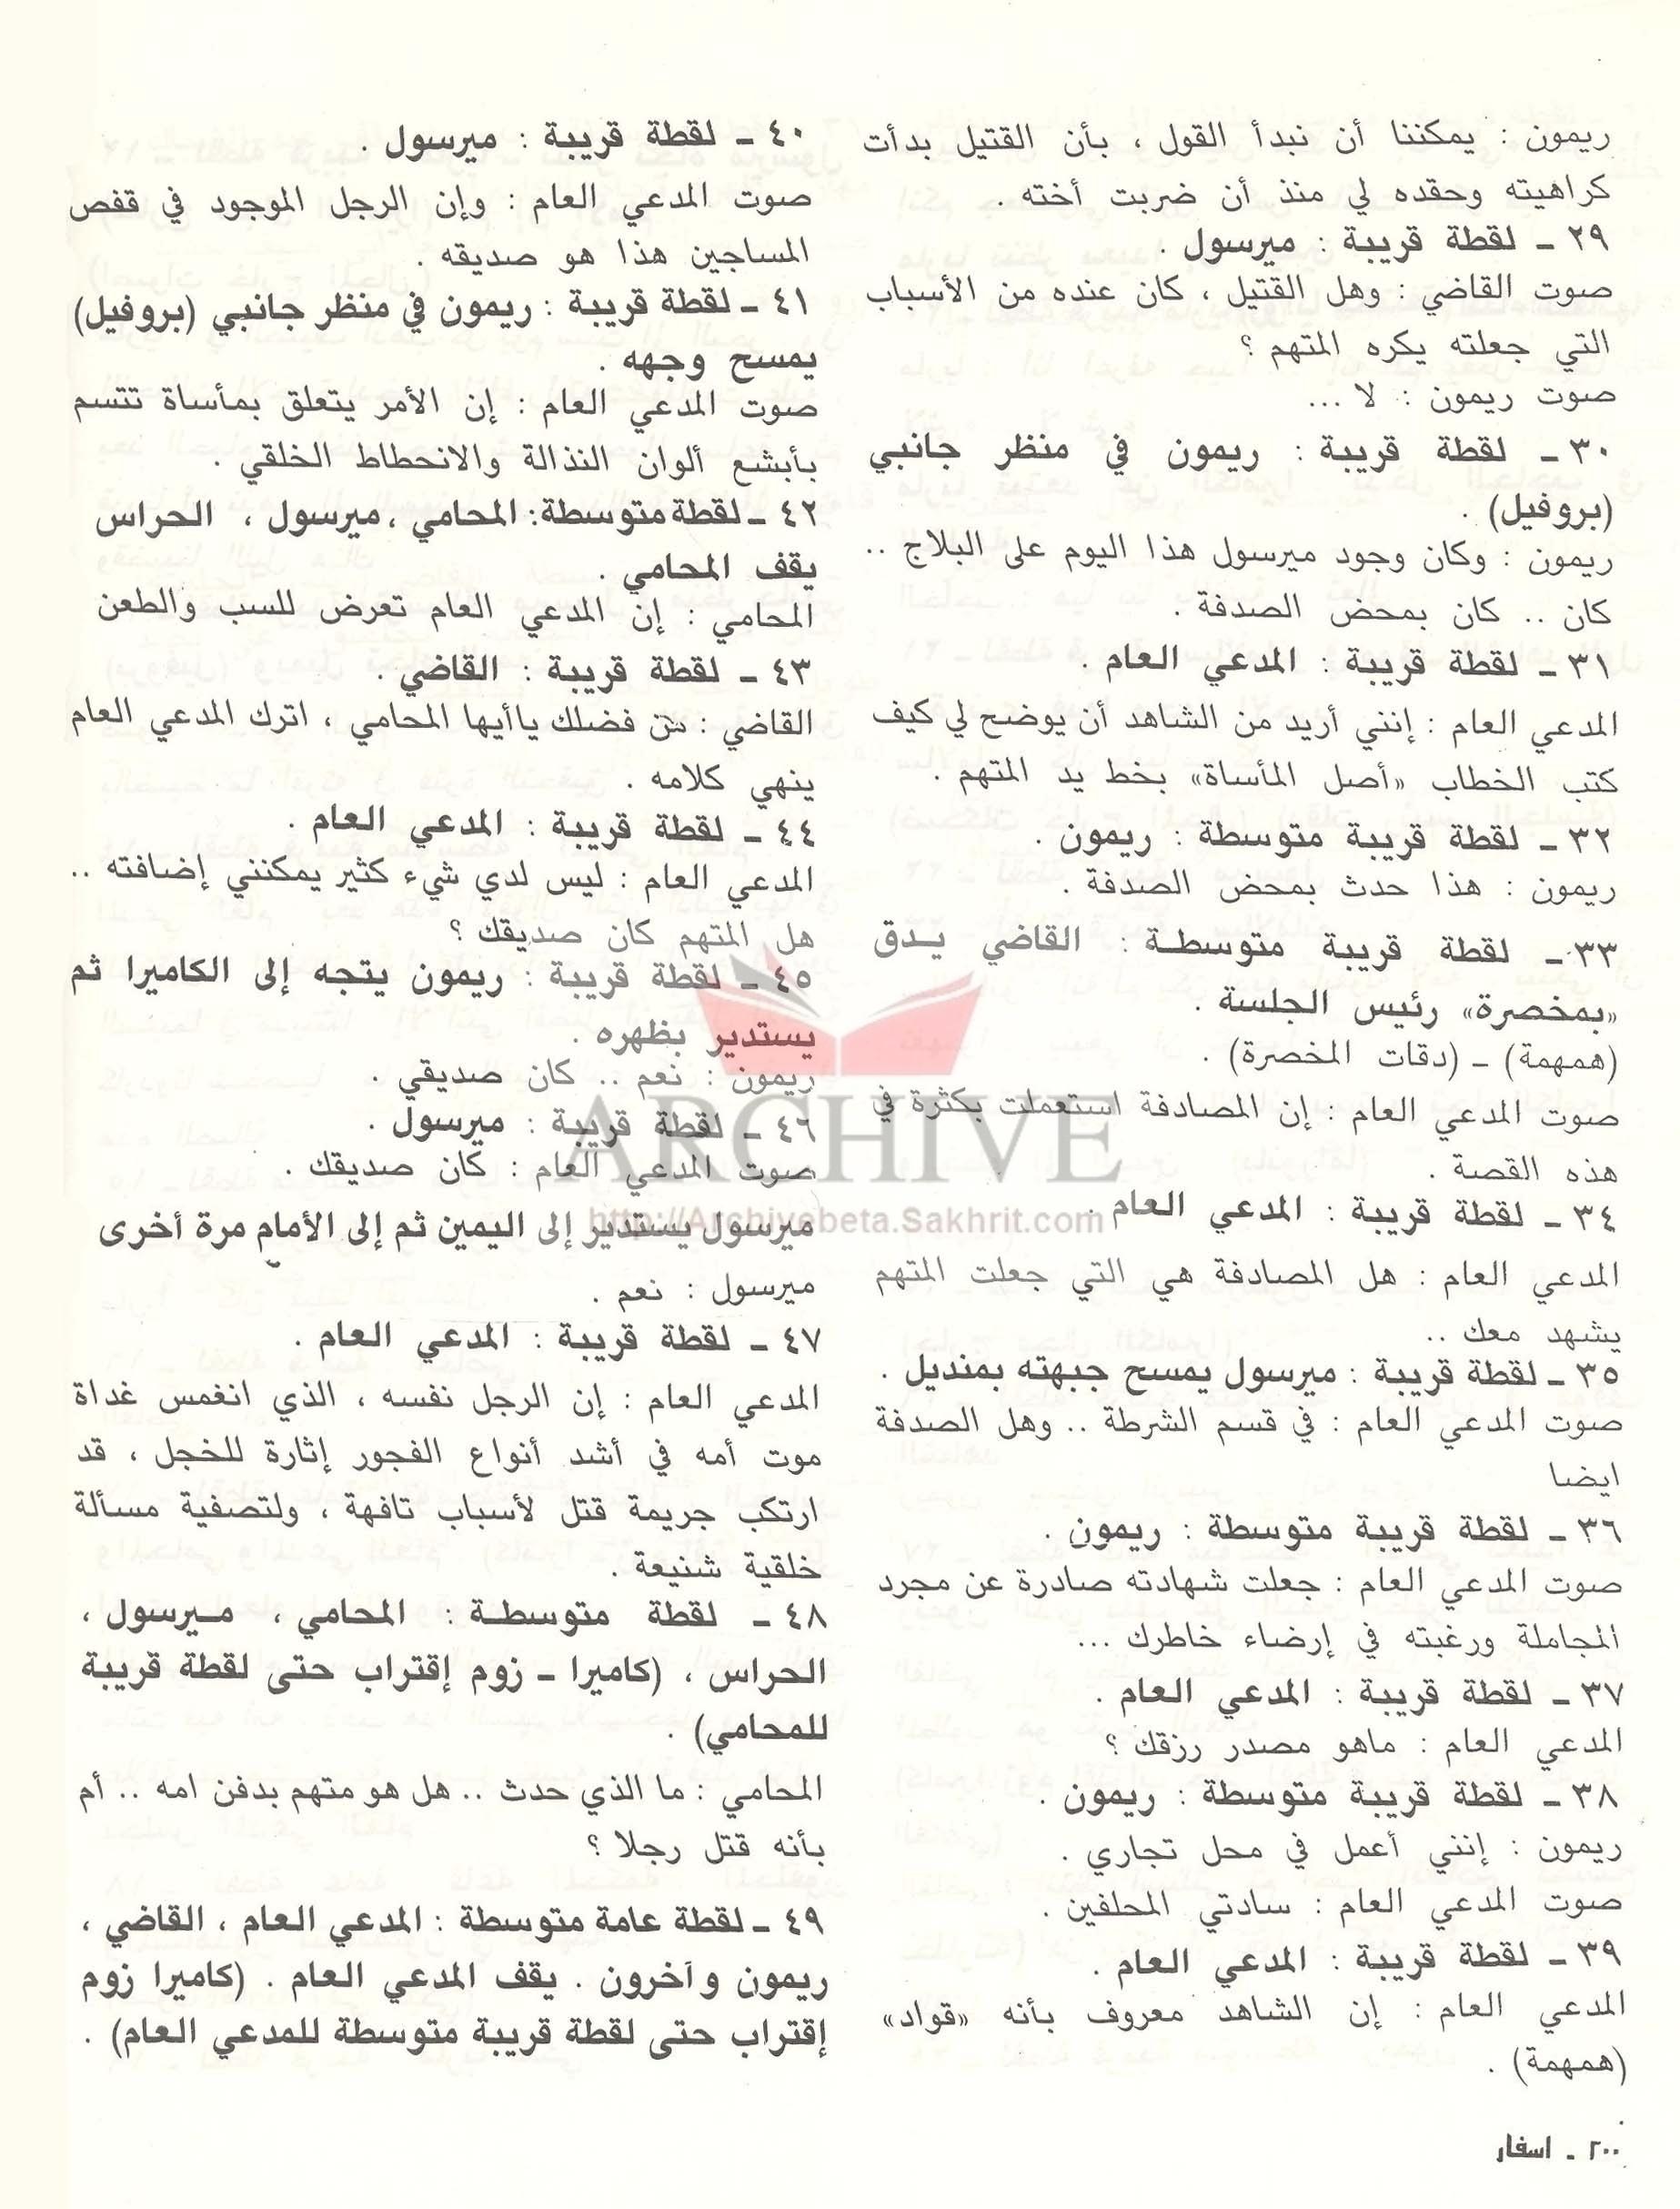 ريمون : يمكننا أن نبدأ القول ، بأن القتيل بدأت
كراهيته وحقده لي منذ أن ضربت أخته .
٢٩ ـ لقطة قريبة : ميرسول .
صوت القاضي : وهل القتيل ، كان عنده من الأسباب
التي جعلته يكره المتهم ؟
صوت ريمون : لا ...
٣٠ ـ لقطة قريبة : ريمون في منظر جانبي
(بروفيل) .
ريمون : وكان وجود ميرسول هذا اليوم على البلاج ..
كان .. كان بمحض الصدفة .
٣١ ـ لقطة قريبة : المدعي العام .
المدعي العام : إنني أريد من الشاهد أن يوضح لي كيف
كتب الخطاب «أصل المأساة» بخط يد المتهم .
٣٢ ـ لقطة قريبة متوسطة : ريمون .
ريمون : هذا حدث بمحض الصدفة .
٣٣ ـ لقطة قريبة متوسطـة : القاضي يـدق
«بمخصرة» رئيس الجلسة .
(همهمة) ـ (دقات المخصرة) .
صوت المدعي العام : إن المصادفة استعملت بكثرة في
هذه القصة .
٣٤ ـ لقطة قريبة : المدعي العام .
المدعي العام : هل المصادفة هي التي جعلت المتهم
يشهد معك ..
٣٥ ـ لقطة قريبة : ميرسول يمسح جبهته بمنديل .
صوت المدعي العام : في قسم الشرطة .. وهل الصدفة
ايضا
٣٦ ـ لقطة قريبة متوسطة : ريمون .
صوت المدعي العام : جعلت شهادته صادرة عن مجرد
المجاملة ورغبته في إرضاء خاطرك ...
٣٧ ـ لقطة قريبة : المدعي العام .
المدعي العام : ماهو مصدر رزقك ؟
٣٨ ـ لقطة قريبة متوسطة : ريمون .
ريمون : إنني أعمل في محل تجاري .
صوت المدعي العام : سادتي المحلفين .
٣٩ ـ لقطة قريبة : المدعي العام .
المدعي العام : إن الشاهد معروف بأنه «قواد»
(همهمة) .
٤٠ ـ لقطة قريبة : ميرسول .
صوت المدعي العام : وإن الرجل الموجود في قفص
المساجين هذا هو صديقه .
٤١ ـ لقطة قريبة : ريمون في منظر جانبي (بروفيل)
يمسح وجهه .
صوت المدعي العام : إن الأمر يتعلق بمأساة تتسم
بأبشع ألوان النذالة والانحطاط الخلقي .
٤٢ ـ لقطة متوسطة: المحامي ، ميرسول ، الحراس
يقف المحامي .
المحامي : إن المدعي العام تعرض للسب والطعن
٤٣ ـ لقطة قريبة : القاضي .
القاضي : من فضلك ياأيها المحامي ، اترك المدعي العام
ينهي كلامه .
٤٤ ـ لقطة قريبة : المدعي العام .
المدعي العام : ليس لدي شيء كثير يمكنني إضافته ..
هل المتهم كان صديقك ؟
٤٥ ـ لقطة قريبة : ريمون يتجه إلى الكاميرا ثم
يستدير بظهره .
ريمون : نعم .. كان صديقي .
٤٦ ـ لقطة قريبة : ميرسول .
صوت المدعي العام : كان صديقك .
ميرسول يستدير إلى اليمين ثم إلى الأمام مرة أخرى
ميرسول : نعم .
٤٧ ـ لقطة قريبة : المدعي العام .
المدعي العام : إن الرجل نفسه ، الذي انغمس غداة
موت أمه في أشد أنواع الفجور إثارة للخجل ، قد
ارتكب جريمة قتل لأسباب تافهة ، ولتصفية مسألة
خلقية شنيعة .
٤٨ ـ لقطة متوسطـة : المحامي ، مـيرسول ،
الحراس ، (كاميرا ـ زوم إقتراب حتى لقطة قريبة
للمحامي) .
المحامي : ما الذي حدث .. هل هو متهم بدفن امه .. أم
بأنه قتل رجلا ؟
٤٩ ـ لقطة عامة متوسطة : المدعي العام ، القاضي ،
ريمون وآخرون . يقف المدعي العام . (كاميرا زوم
إقتراب حتى لقطة قريبة متوسطة للمدعي العام) .
ARCHIVE
http://Archivebeta.Sakhrit.com
٢٠٠ ـ اسفار